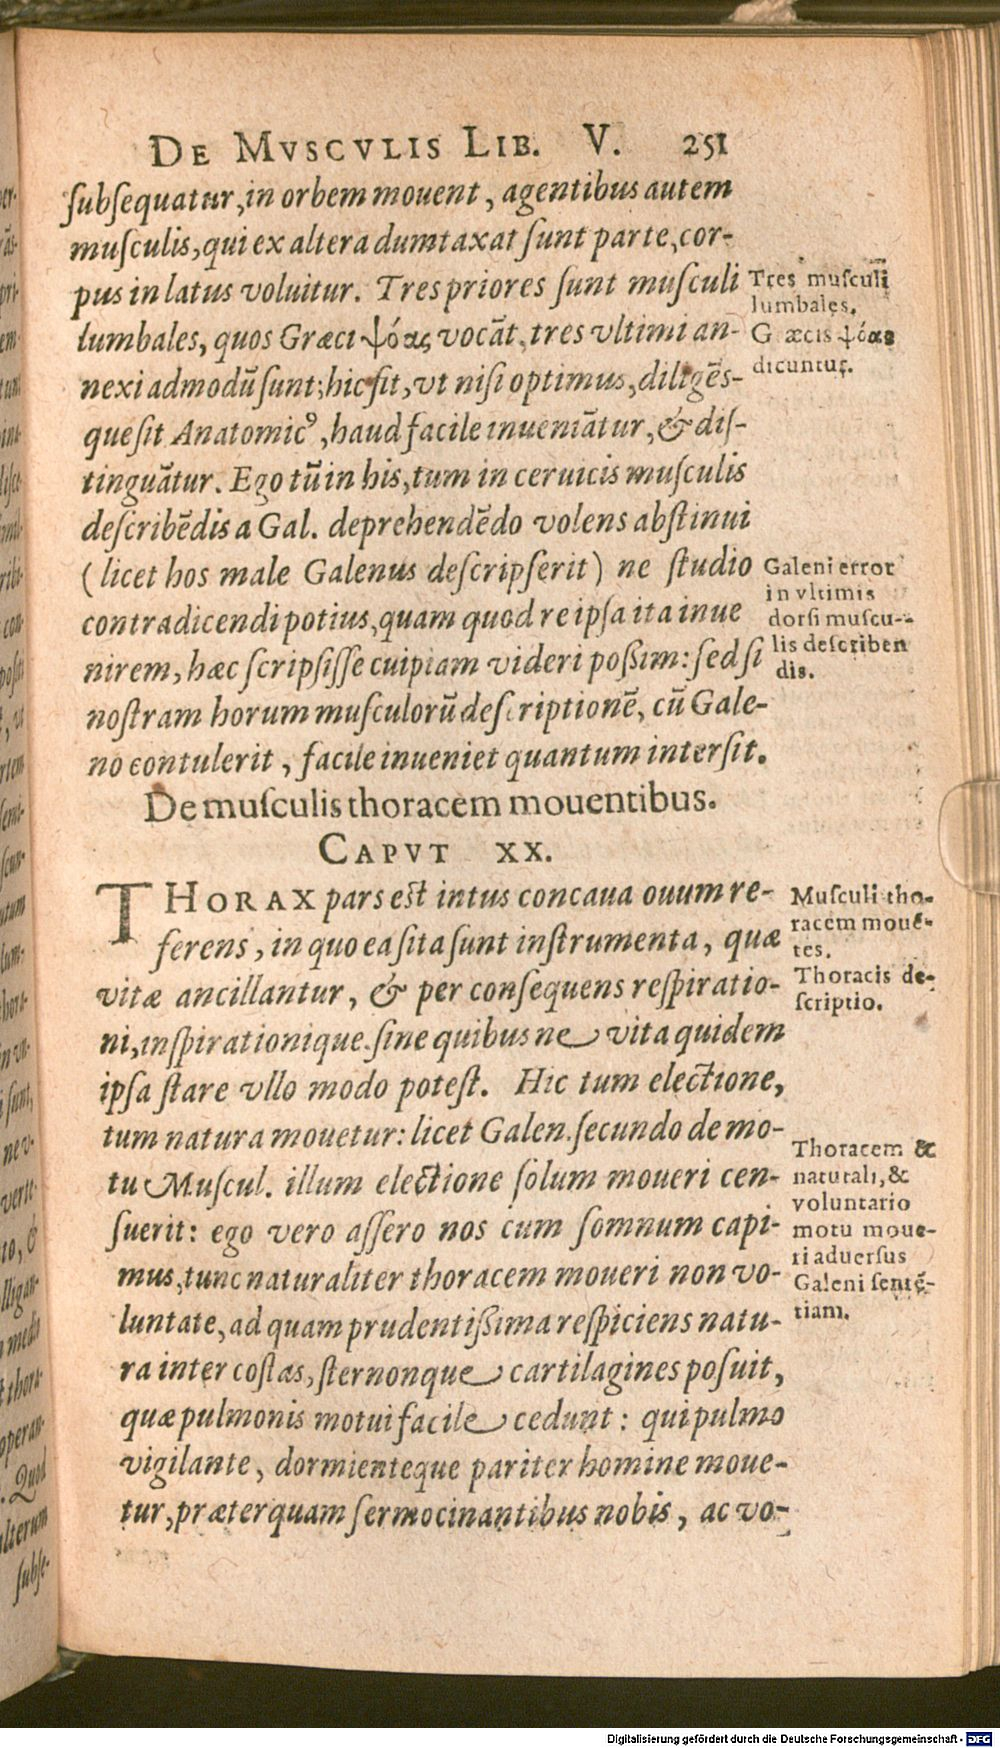 DE MVSCVLIS LIB. V. 251
ſubſequatur, in orbem mouent, agentibus autem
muſculis, qui ex altera dumtaxat ſunt parte, cor-
pus in latus voluitur. Tres priores ſunt muſculi
lumbales, quos Græci ψόας vocāt, tres vltimi an-
nexi admodū ſunt; hic fit, vt niſi optimus, diligēſ-
que ſit Anatomicꝰ, haud facile inueniātur, & diſ-
tinguātur. Ego tū in his, tum in ceruicis muſculis
deſcribēdis a Gal. deprehendēdo volens abſtinui
(licet hos male Galenus deſcripſerit) ne ſtudio
contradicendi potius, quam quod re ipſa ita inue
nirem, hæc ſcripſiſſe cuipiam videri poßim: ſed ſi
noſtram horum muſculorū deſcriptionē, cū Gale-
no contulerit, facile inueniet quantum interſit.
De muſculis thoracem mouentibus.
CAPVT XX.
THORAX pars est intus concaua ouum re-
ferens, in quo ea ſita ſunt inſtrumenta, quæ
vitæ ancillantur, & per conſequens reſpiratio-
ni, inſpirationique, ſine quibus ne vita quidem
ipſa ſtare vllo modo poteſt. Hic tum electione,
tum natura mouetur: licet Galen. ſecundo de mo-
tu Muſcul. illum electione ſolum moueri cen-
ſuerit: ego vero aſſero nos cum ſomnum capi-
mus, tunc naturaliter thoracem moueri non vo-
luntate, ad quam prudentißima reſpiciens natu-
ra inter coſtas, ſternonque cartilagines poſuit,
quæ pulmonis motui facile cedunt: qui pulmo
vigilante, dormienteque pariter homine moue-
tur, præterquam ſermocinantibus nobis, ac vo-
Tres muſculi
lumbales.
Græcis ψόας
dicuntur.
Galeni error
in vltimis
dorſi muſcu-
lis deſcriben
dis.
Muſculi tho-
racem mouē-
tes.
Thoracis de-
ſcriptio.
Thoracem &
naturali, &
voluntario
motu moue-
ri aduerſus
Galeni ſentē-
tiam.
Digitalisierung gefördert durch die Deutsche Forschungsgemeinschaft - DFG